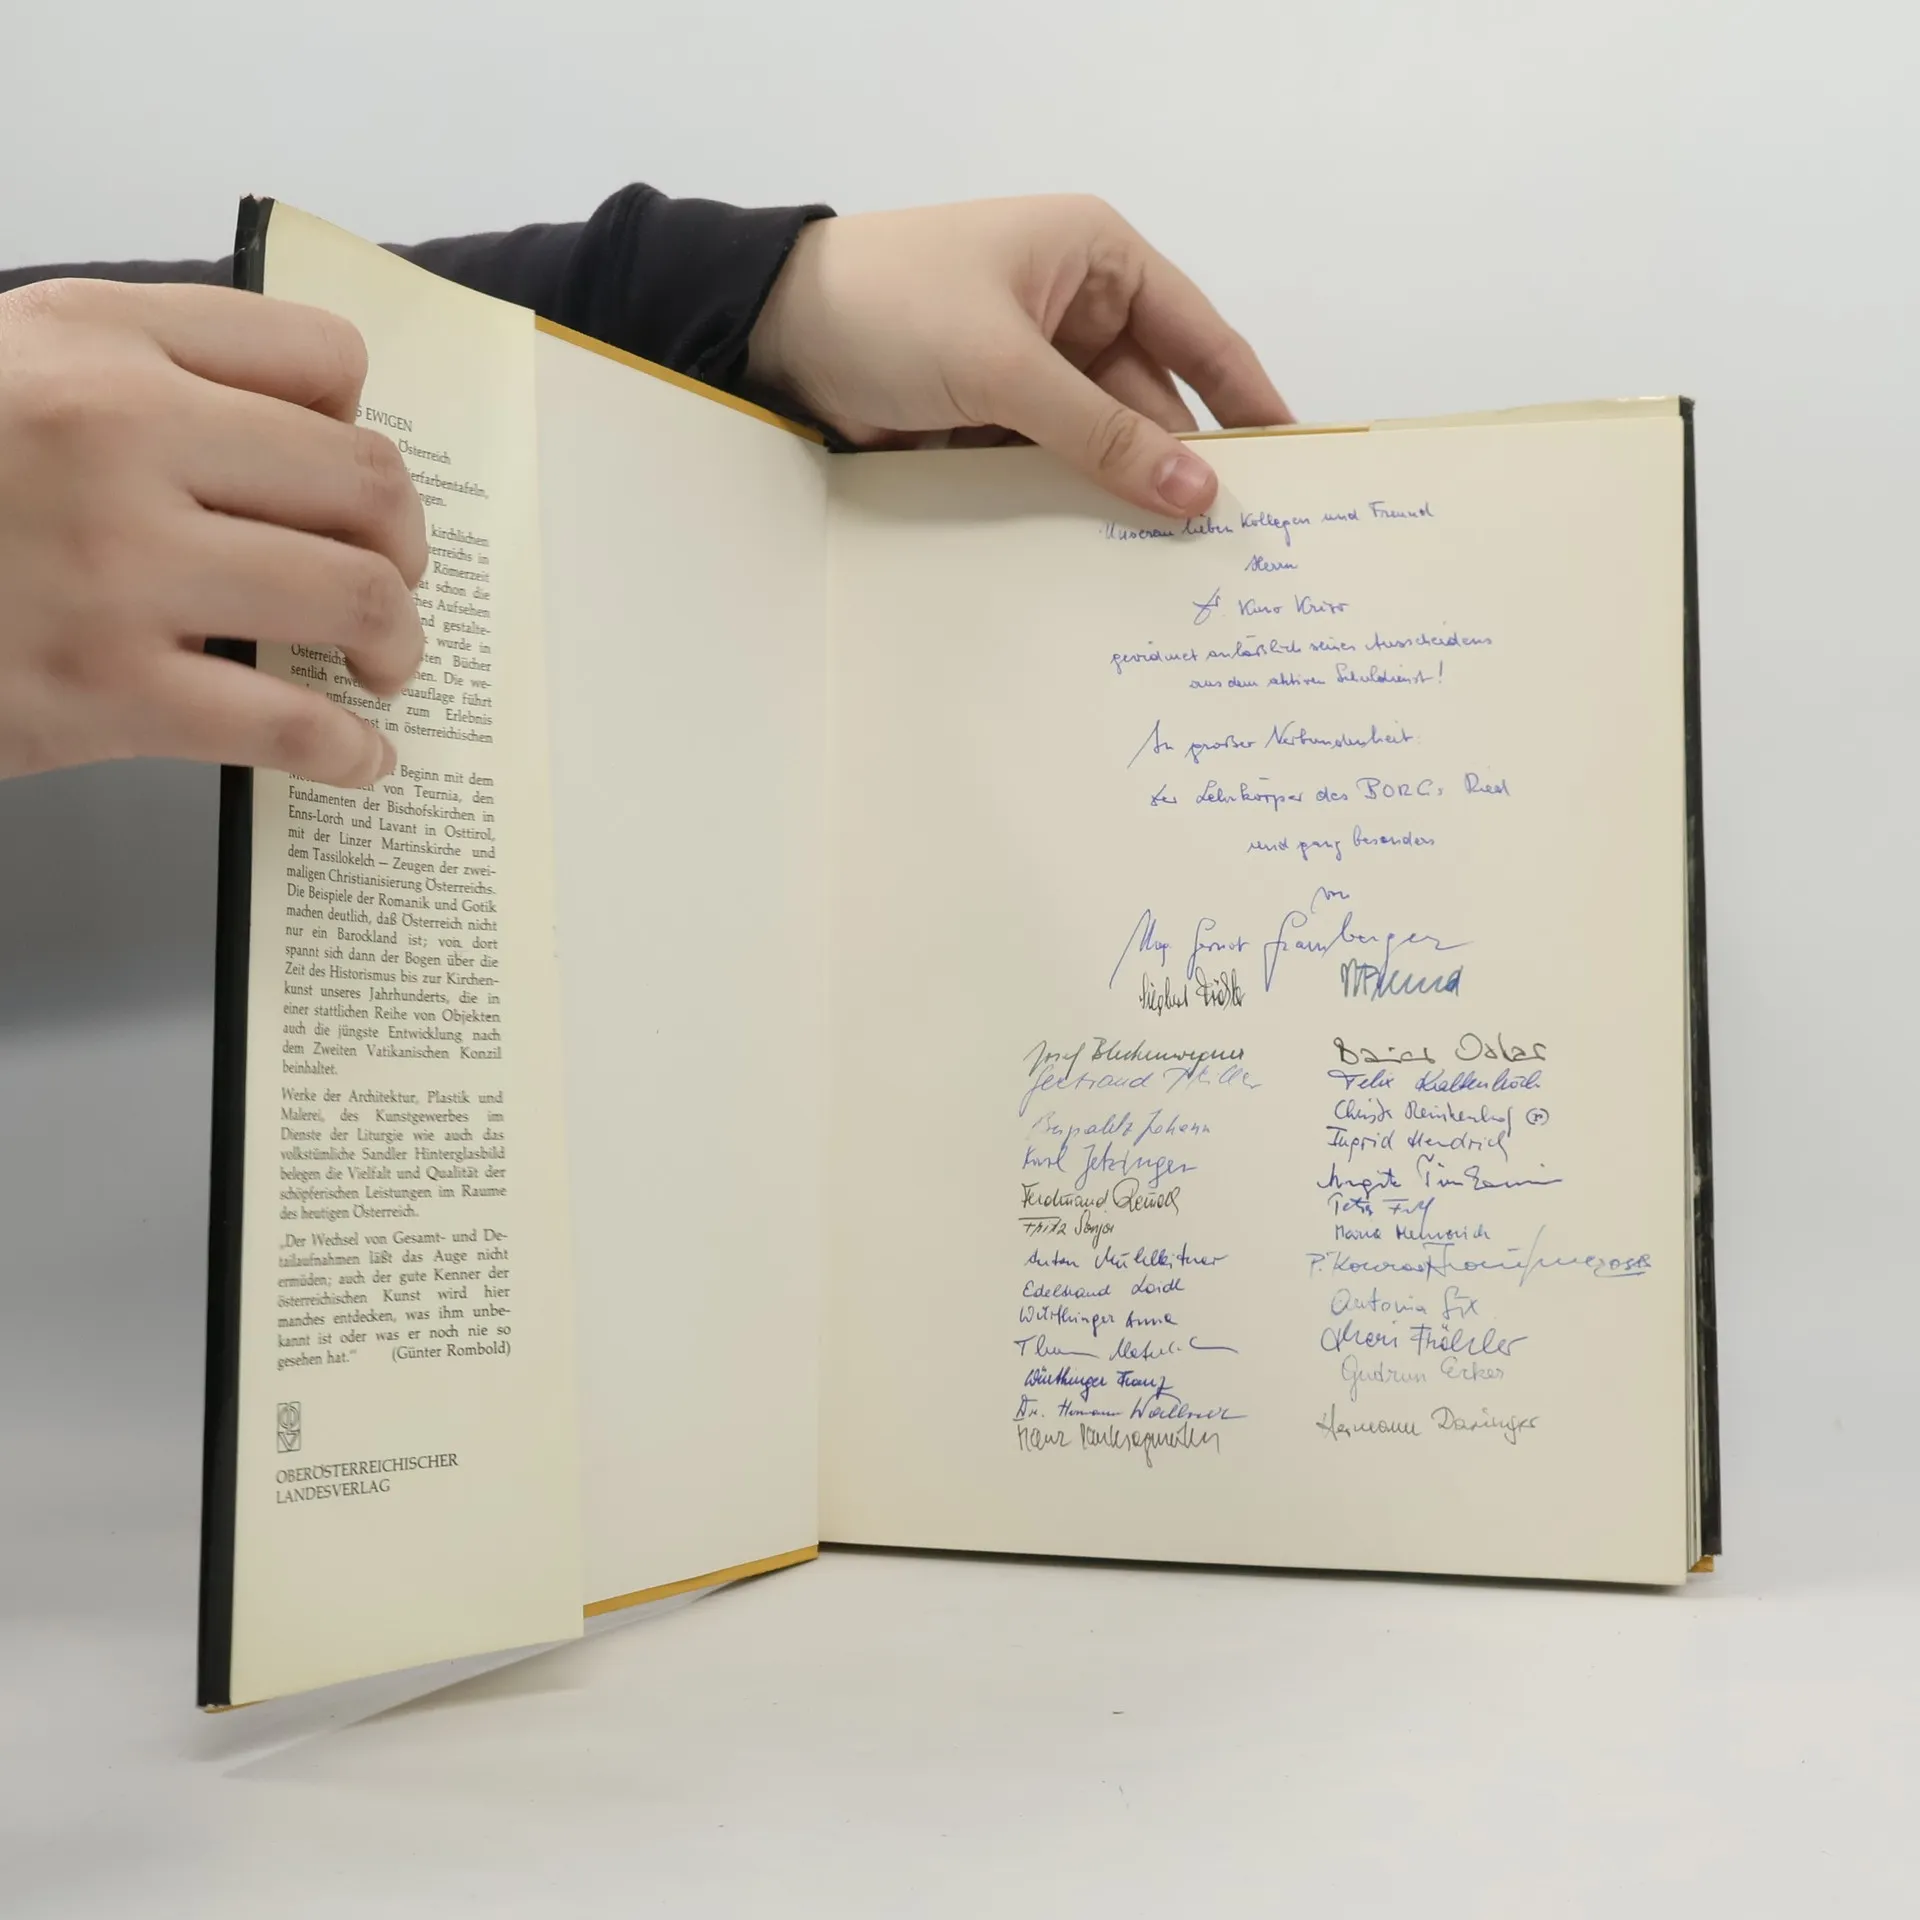 G EWIGEN
Österreich
ierfarbentafeln,
ngen.
kirchlichen
terreichs in
Römerzeit
at schon die
hes Aufsehen
nd gestalte-
wurde in
Österreichs sten Bücher
sentlich erwei nen. Die we-
euauflage führt
umfassender zum Erlebnis
nst im österreichischen
Beginn mit dem
von Teurnia, den
Fundamenten der Bischofskirchen in
Enns-Lorch und Lavant in Osttirol,
mit der Linzer Martinskirche und
dem Tassilokelch — Zeugen der zwei-
maligen Christianisierung Österreichs.
Die Beispiele der Romanik und Gotik
machen deutlich, daß Österreich nicht
nur ein Barockland ist; von dort
spannt sich dann der Bogen über die
Zeit des Historismus bis zur Kirchen-
kunst unseres Jahrhunderts, die in
einer stattlichen Reihe von Objekten
auch die jüngste Entwicklung nach
dem Zweiten Vatikanischen Konzil
beinhaltet.
Werke der Architektur, Plastik und
Malerei, des Kunstgewerbes im
Dienste der Liturgie wie auch das
volkstümliche Sandler Hinterglasbild
belegen die Vielfalt und Qualität der
schöpferischen Leistungen im Raume
des heutigen Österreich.
„Der Wechsel von Gesamt- und De-
tailaufnahmen läßt das Auge nicht
ermüden; auch der gute Kenner der
österreichischen Kunst wird hier
manches entdecken, was ihm unbe-
kannt ist oder was er noch nie so
gesehen hat.“ (Günter Rombold)
OBERÖSTERREICHISCHER
LANDESVERLAG
Unserem lieben Kollegen und Freund
Herrn
gewidmet anläßlich seines Ausscheidens
aus dem aktiven Schuldienst!
In großer Verbundenheit:
der Lehrkörper des BORG Ried
und ganz besonders
von
Mag. Gernot
Josef
Gertraud
Johann
Karl Jetzinger
Ferdinand
Fritz
Anton Mühlleitner
Edeltraud Loidl
Würthinger Anna
Würthinger Franz
Dr. Hermann Wallner
Felix
Ingrid Hendrich
Maria
P. Konrad
Antonia
Gudrun Ecker
Hermann Daringer